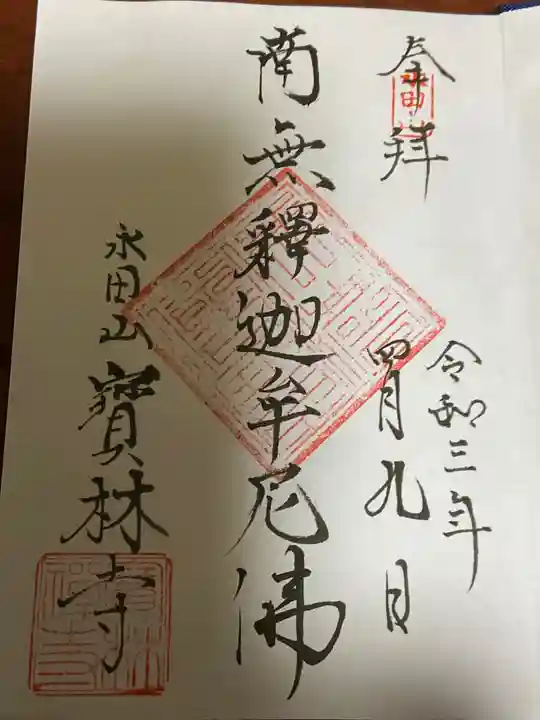 奉拜
令和三年
四月九日
南無釋迦牟尼佛
永田山寳林寺